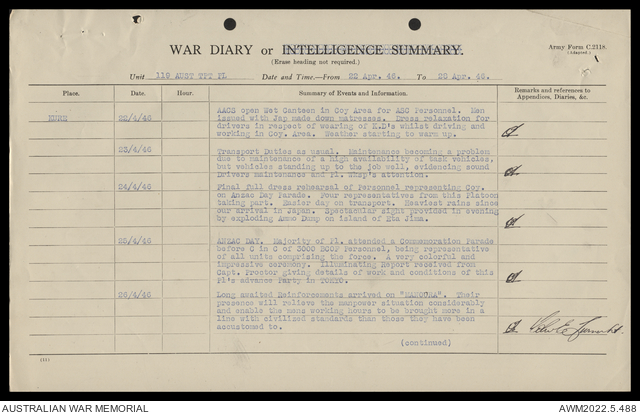 WAR DIARY or INTELLIGENCE SUMMARY.
(Erase heading not required.)
Army Form C.2118.
(Adapted.)
Unit 119 AUST TPT PL Date and Time—From 22 Apr. 46. To 26 Apr. 46.
Place. Date. Hour. Summary of Events and Information. Remarks and references to Appendices, Diaries, &c.
22/4/46 AACS open Wet Canteen in Coy Area for ASC Personnel. Men
issued with Jap made down matresses. Dress relaxation for
drivers in respect of wearing of K.D's whilst driving and
working in Coy. Area. Weather starting to warm up.
23/4/46 Transport Duties as usual. Maintenance becoming a problem
due to maintenance of a high availability of task vehicles,
but vehicles standing up to the job well, evidencing sound
Drivers maintenance and Pl. Wksp's attention.
24/4/46 Final full dress rehearsal of Personnel representing Coy.
on Anzac Day Parade. Four representatives from this Platoon
taking part. Easier day on transport. Heaviest rains since
our arrival in Japan. Spectacular sight provided in evening
by exploding Ammo Dump on island of Eta Jima.
25/4/46 ANZAC DAY. Majority of Pl. attended a Commemoration Parade
before C in C of 3000 BCOF Personnel, being representative
of all units comprising the force. A very colorful and
impressive ceremony. Illuminating Report received from
Capt. Proctor giving details of work and conditions of this
Pl's advance Party in TOKYO.
26/4/46 Long awaited Reinforcements arrived on "MANOORA". Their
presence will relieve the manpower situation considerably
and enable the mens working hours to be brought more in a
line with civilized standards than those they have been
accustomed to.
(continued)
AUSTRALIAN WAR MEMORIAL
AWM2022.5.488